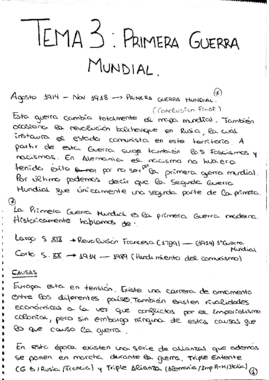 TEMA 3: PRIMERA GUERRA
MUNDIAL.
Agosto 1914 - Nov 1918 --> PRIMERA GUERRA MUNDIAL.
(Conclusión Final)
Esta guerra cambia totalmente el mapa mundial. También
ocasiona la revolución bolchevique en Rusia, la cual
instaura el estado comunista en este territorio. A
partir de esta Guerra surge también los Fascismos y
nacismos. En Alemania el nacismo no hubiera
tenido éxito por no ser por la primera guerra mundial.
Por último podemos decir que la Segunda Guerra
Mundial fue únicamente una segunda parte de la primera.
La Primera Guerra Mundial es la primera Guerra moderna
Históricamente hablamos de:
Largo S. XIX -> Revolución Francesa (1789) - (1914) 1ª Guerra
Mundial
Corto S. XX -> 1914 - 1989 (Hundimiento del comunismo)
CAUSAS
Europa esta en tensión. Existe una carrera de armamento
entre los diferentes países. También existen rivalidades
económicas a la vez que conflictos por el imperialismo
colonial, pero sin embargo ninguna de estas causas fue
lo que causo la guerra.
En esta época existen una serie de alianzas que además
se ponen en marcha durante la guerra, Triple Entente
(GB/Rusia/Francia) y Triple Alianza (Alemania/Imp A-H/Italia)